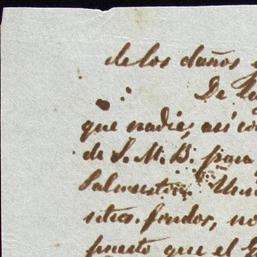 de los daños
De
que nadie, así co
de S. M. B. para
sitios. fondos, no
puesto que el